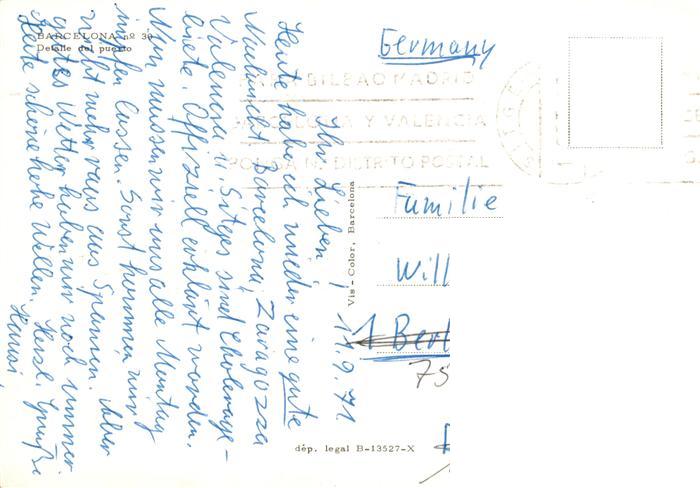 BARCELONA nº 30
Detalle del puerto
Ihr Lieben! 19.9.71
Heute habe ich wieder eine gute
Nachricht. Barcelona, Zaragozza
Valencia u. Sitges sind Cholerage-
biete. Offiziell erklärt worden.
Nun müssen wir uns alle Montag
impfen lassen. Sonst kommen wir
nicht mehr raus aus Spanien. Aber
gutes Wetter haben wir noch immer
Heute schöne hohe Wellen. Herzl. Grüße
Hansi,
Vis-Color, Barcelona
dép. legal B-13527-X
Germany
BILBAO MADRID
BARCELONA Y VALENCIA
PONGA Nº DISTRITO POSTAL
Familie
Will
1 Berl
75